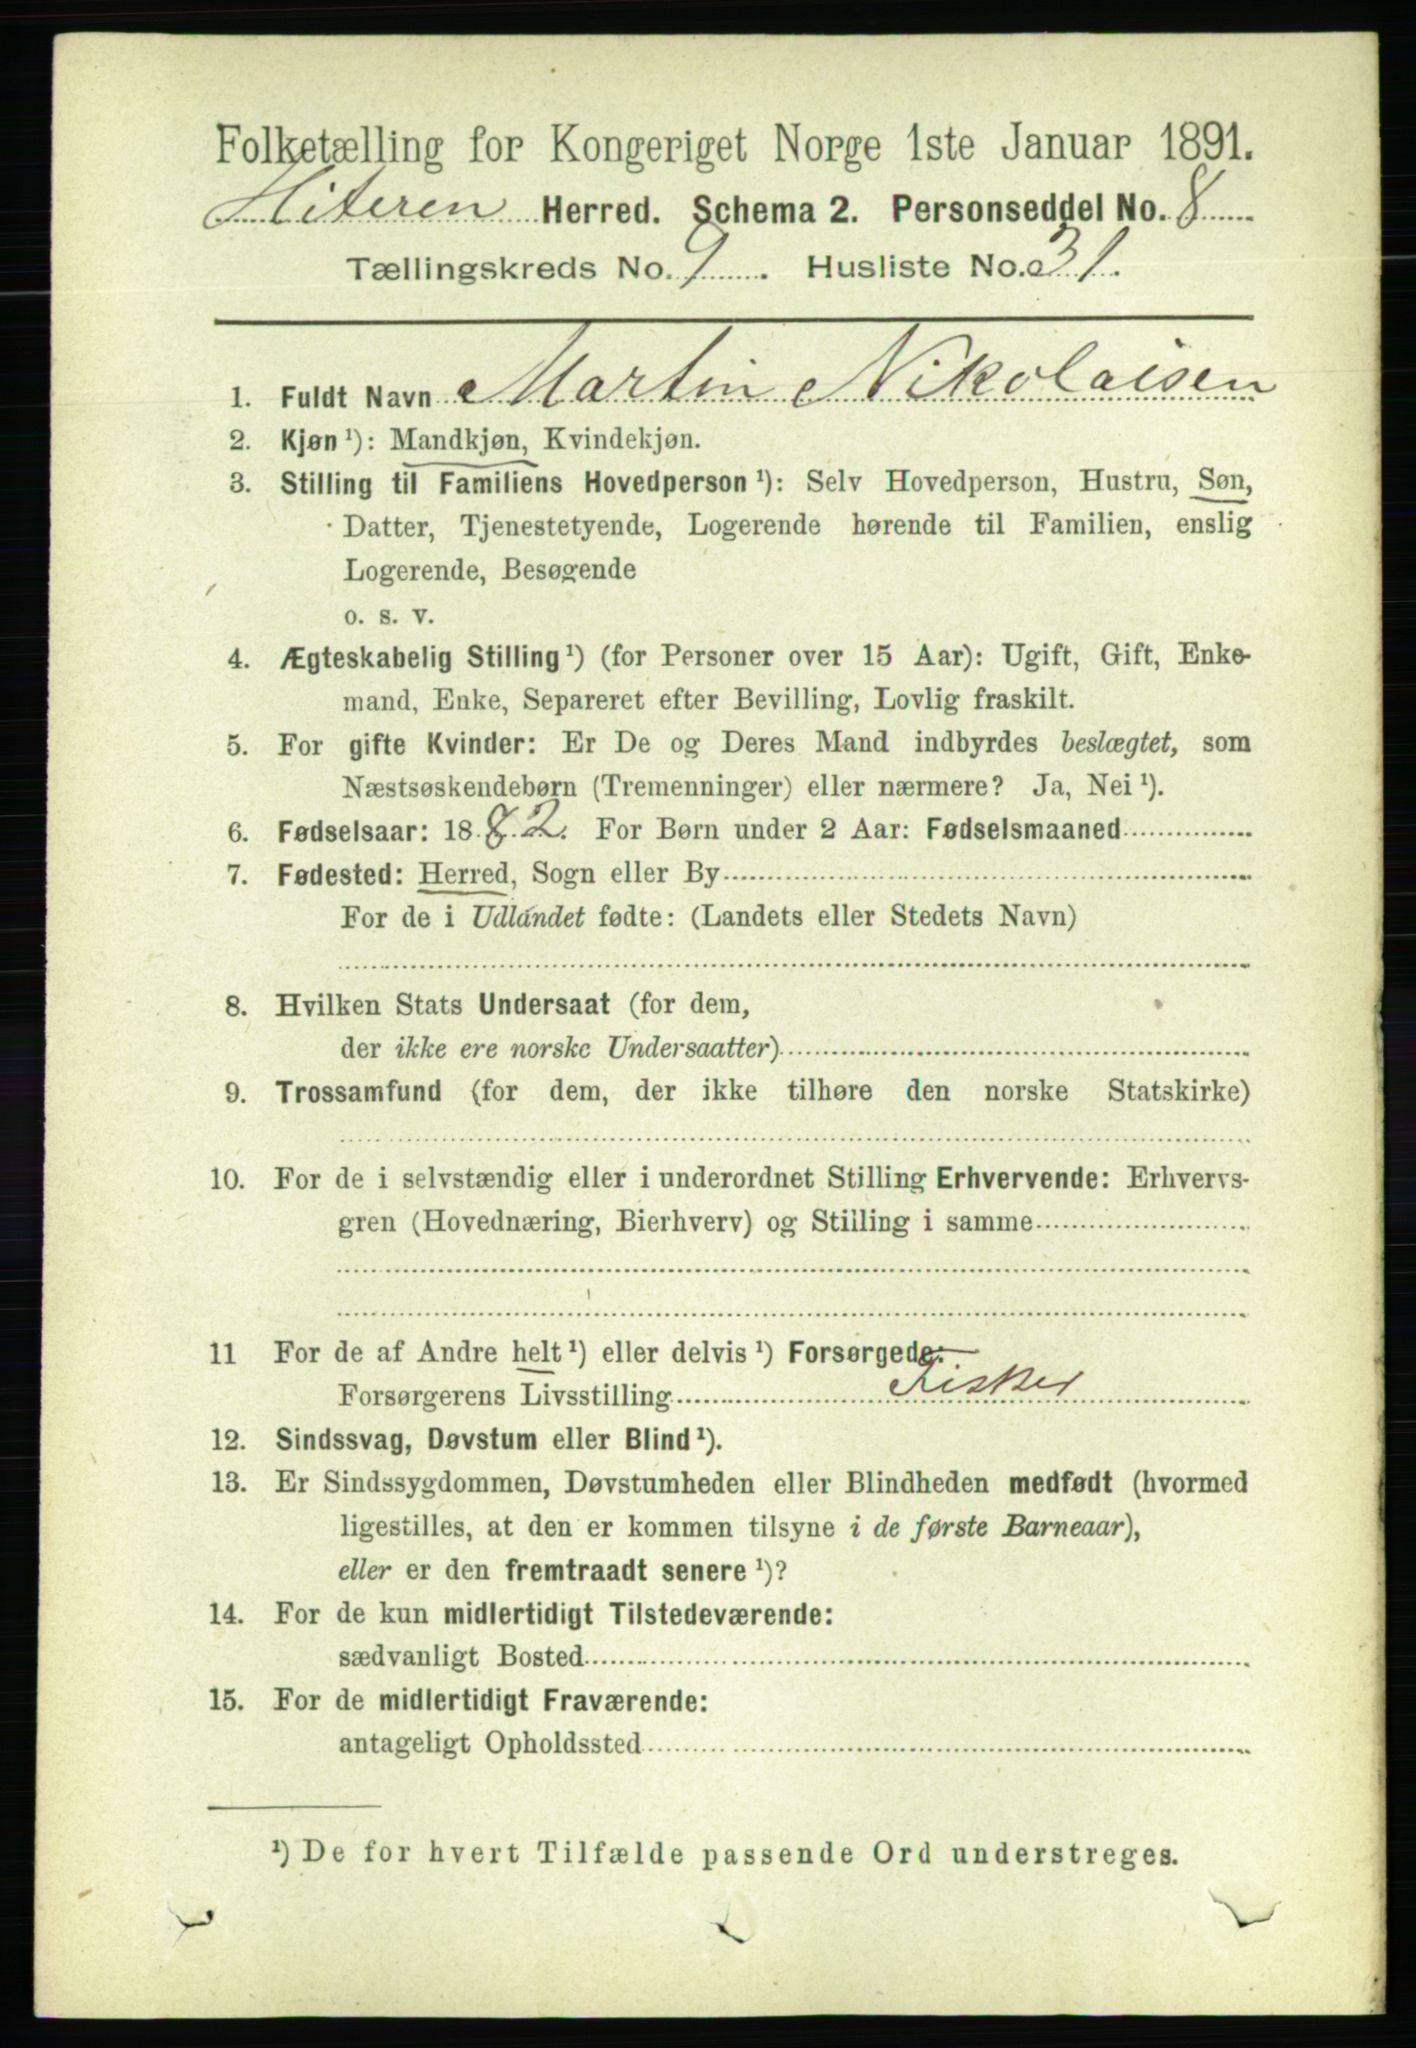 Folketælling for Kongeriget Norge 1ste Januar 1891.
Hiteren Herred. Schema 2. Personseddel No. 8
Tællingskreds No. 9. Husliste No. 31.
1. Fuldt Navn Martin Nikolaisen
2. Kjøn ¹): Mandkjøn, Kvindekjøn.
3. Stilling til Familiens Hovedperson ¹): Selv Hovedperson, Hustru, Søn,
Datter, Tjenestetyende, Logerende hørende til Familien, enslig
Logerende, Besøgende
o. s. v.
4. Ægteskabelig Stilling ¹) (for Personer over 15 Aar): Ugift, Gift, Enke-
mand, Enke, Separeret efter Bevilling, Lovlig fraskilt.
5. For gifte Kvinder: Er De og Deres Mand indbyrdes beslægtet, som
Næstsøskendebørn (Tremenninger) eller nærmere? Ja, Nei ¹).
6. Fødselsaar: 1882. For Børn under 2 Aar: Fødselsmaaned
7. Fødested: Herred, Sogn eller By
For de i Udlandet fødte: (Landets eller Stedets Navn)
8. Hvilken Stats Undersaat (for dem,
der ikke ere norske Undersaatter)
9. Trossamfund (for dem, der ikke tilhøre den norske Statskirke)
10. For de i selvstændig eller i underordnet Stilling Erhvervende: Erhvervs-
gren (Hovednæring, Bierhverv) og Stilling i samme
11 For de af Andre helt ¹) eller delvis ¹) Forsørgede:
Forsørgerens Livsstilling Fisker
12. Sindssvag, Døvstum eller Blind ¹).
13. Er Sindssygdommen, Døvstumheden eller Blindheden medfødt (hvormed
ligestilles, at den er kommen tilsyne i de første Barneaar),
eller er den fremtraadt senere ¹)?
14. For de kun midlertidigt Tilstedeværende:
sædvanligt Bosted
15. For de midlertidigt Fraværende:
antageligt Opholdssted
¹) De for hvert Tilfælde passende Ord understreges.